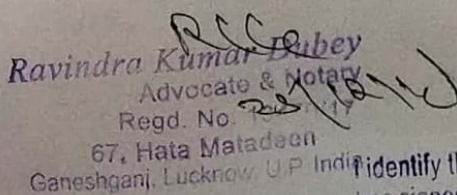 Ravindra Kumar Dubey
Advocate & Notary
Regd. No.
67, Hata Matadeen
Ganeshganj, Lucknow, U.P. India
identify th